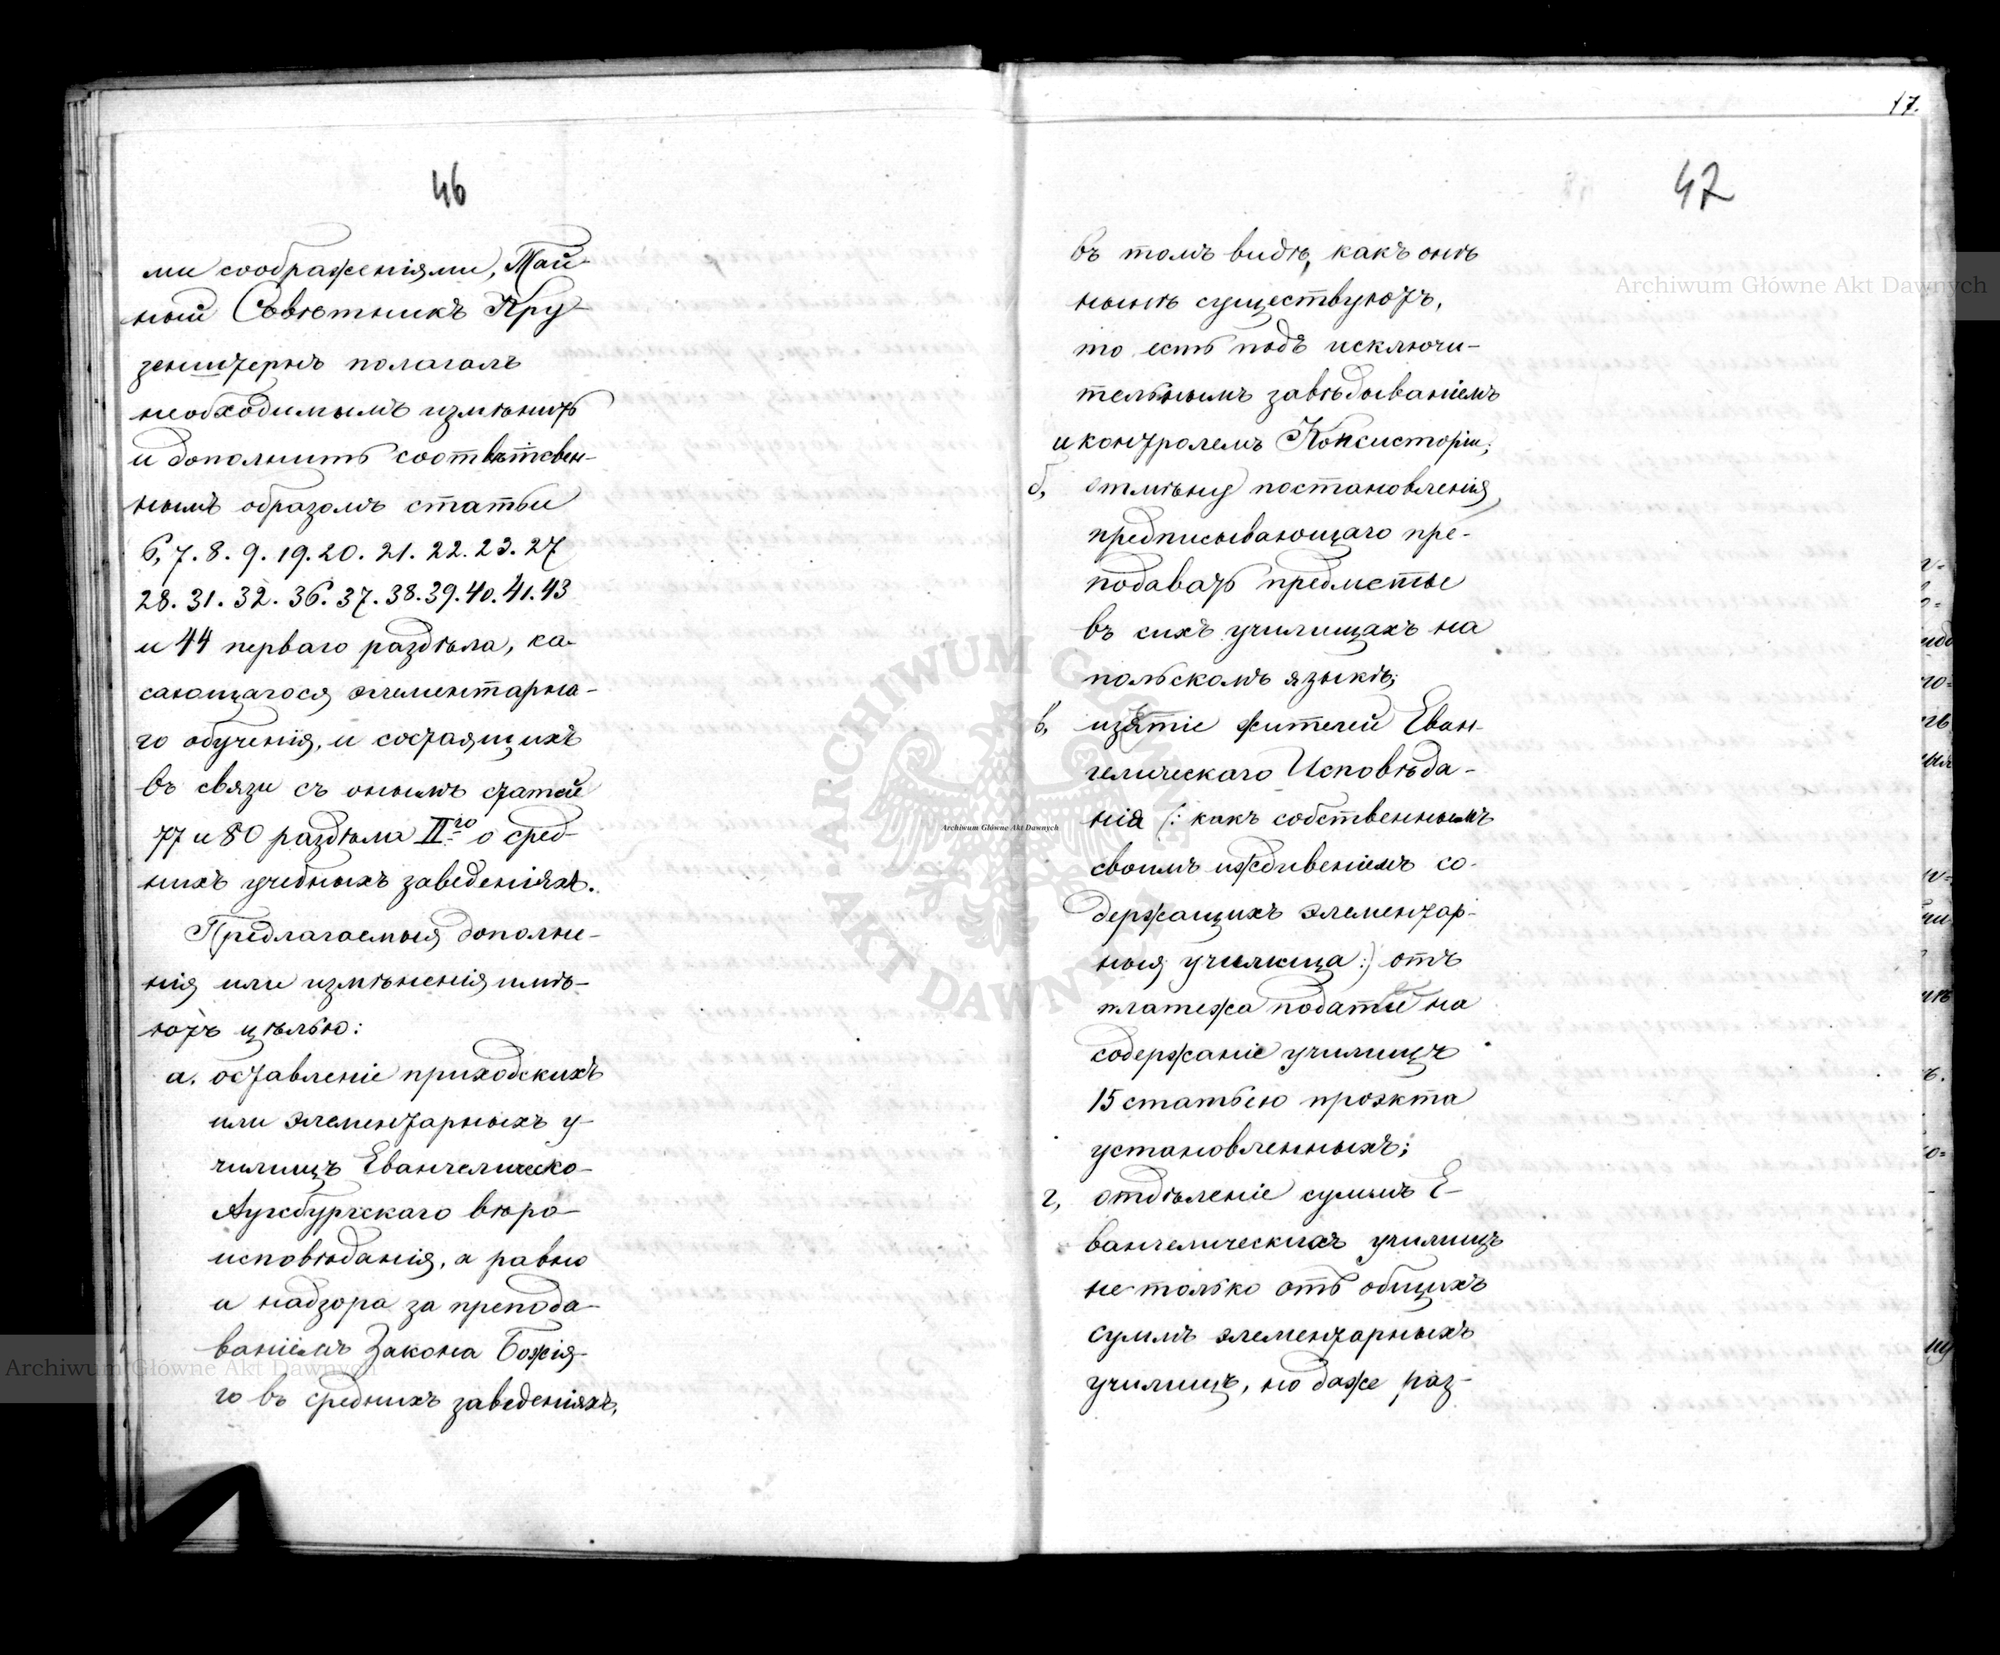 46
ми соображеніями, Тай-
ный Совѣтникъ Кру-
зенштернъ полагалъ
необходимымъ измѣнить
и дополнить соотвѣтсвен-
нымъ образомъ статьи
6, 7. 8. 9. 19. 20. 21. 22. 23. 27
28. 31. 32. 36. 37. 38. 39. 40. 41. 43
и 44 перваго раздѣла, ка-
сающагося элементарна-
го обученія, и состаящихъ
въ связи съ онымъ статей
77 и 80 раздѣла II го о сред-
нихъ учебныхъ заведеніяхъ.
Предлагаемыя дополне-
нія или измѣненія имѣ-
ютъ цѣлью:
а. оставленіе приходскихъ
или элементарныхъ у-
чилищъ Евангелическо-
Аугсбургскаго вѣро-
исповѣданія, а равно
и надзора за препода-
ваніемъ Закона Божія-
го въ среднихъ заведеніяхъ,
17.
47
въ томъ видѣ, какъ онѣ
нынѣ существуютъ,
то есть подъ исключи-
тельнымъ завѣдываніемъ
и контролемъ Консисторіи;
б, отмѣну постановленія,
предписывающаго пре-
подавать предметы
въ сихъ училищахъ на
польскомъ языкѣ;
в, изятіе жителей Еван-
гелическаго Исповѣда-
нія (: какъ собственнымъ
своимъ иждивеніемъ со-
держащихъ элементар-
ныя училища :) отъ
платежа податей на
содержаніе училищъ
15 статьею проэкта
установленныхъ;
г, отдѣленіе суммъ Е-
вангелическихъ училищъ
не только отъ общихъ
суммъ элементарныхъ
училищъ, но даже раз-
Archiwum Główne Akt Dawnych
Archiwum Główne Akt Dawnych
Archiwum Główne Akt Dawnych
ARCHIWUM GŁÓWNE AKT DAWNYCH